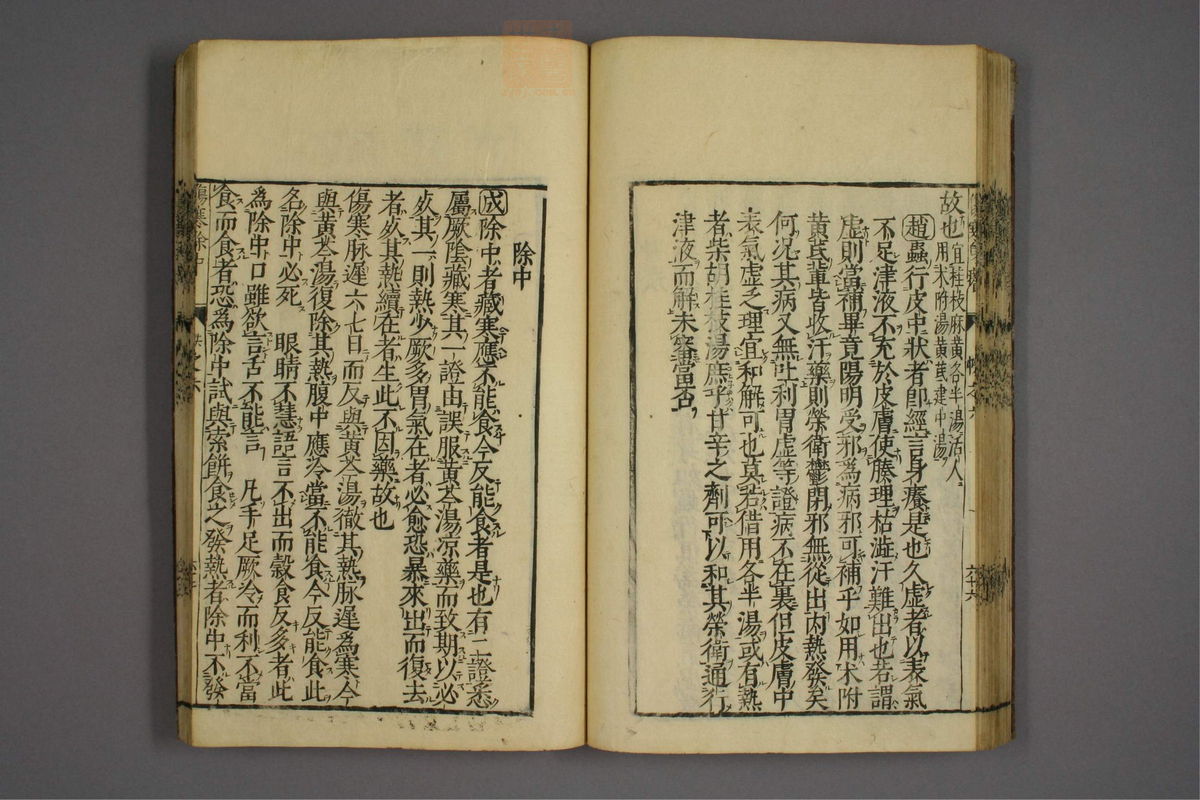 故也宜桂枝麻黃各半湯活人
用朮附湯黃芪建中湯
趙蟲行皮中狀者即經言身癢是也久虛者以表氣
不足津液不充於皮膚使腠理枯澁汗難出也若謂
虛則當補畢竟陽明受邪為病邪可補乎如用朮附
黃芪輩皆收汗藥則榮衛鬱閉邪無從出內熱發矣
何况其病又無吐利胃虛等證病不在裏但皮膚中
表氣虛乏理宜和解可也莫若借用各半湯或有熱
者柴胡桂枝湯庶乎甘辛之劑可以和其榮衛通行
津液而解未審當否
除中
成除中者藏寒應不能食今反能食者是也有二證悉
屬厥陰藏寒其一證由誤服黃芩湯凉藥而致期以必
死其一則熱少厥多胃氣在者必愈恐暴來出而復去
者死其熱續在者生此不因藥故也
傷寒脉遲六七日而反與黃芩湯徹其熱脉遲爲寒今
與黃芩湯復除其熱腹中應冷當不能食今反能食此
名除中必死 眼睛不慧語言不出而穀食反多者此
爲除中口雖欲言舌不能言 凡手足厥冷而利不當
食而食者恐爲除中試與索餅食之發熱者除中不發
傷寒除中